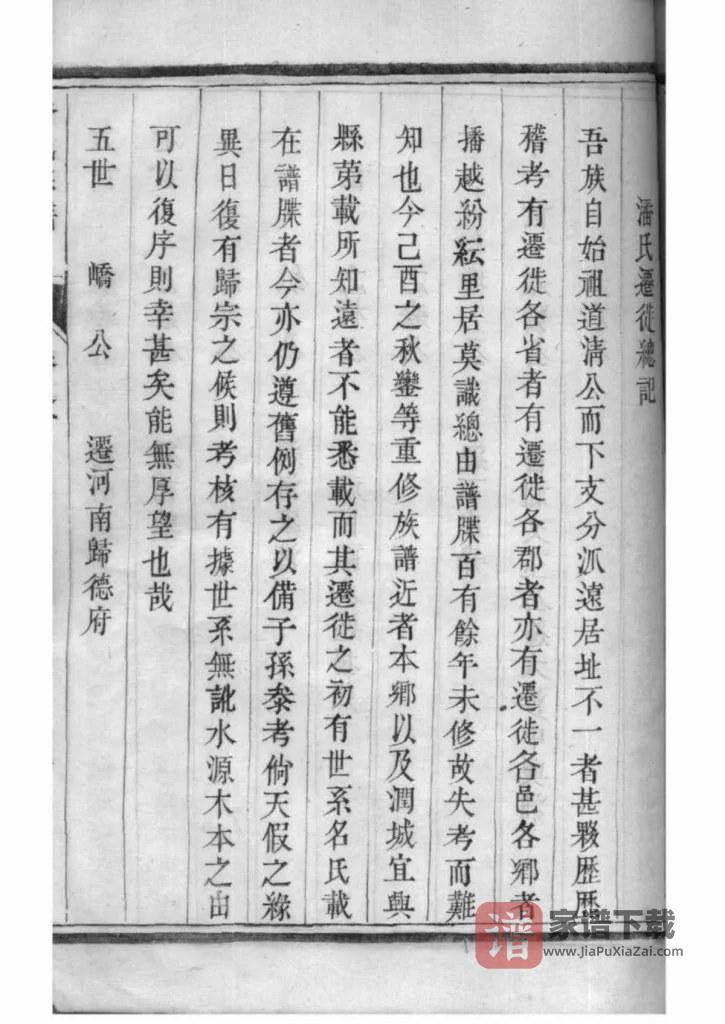 潘氏遷徙總記
吾族自始祖道清公而下支分派遠居址不一者甚夥歷歷
稽考有遷徙各省者有遷徙各郡者亦有遷徙各邑各鄉者
播越紛紜里居莫識總由譜牒百有餘年未修故失考而難
知也今己酉之秋鑾等重修族譜近者本鄉以及潤城宜興
縣苐載所知遠者不能悉載而其遷徙之初有世系名氏載
在譜牒者今亦仍遵舊例存之以備子孫叅考倘天假之緣
異日復有歸宗之候則考核有據世系無訛水源木本之由
可以復序則幸甚矣能無厚望也哉
五世 嶠公 遷河南歸德府
谱 家谱下载
www.JiaPuXiaZai.com